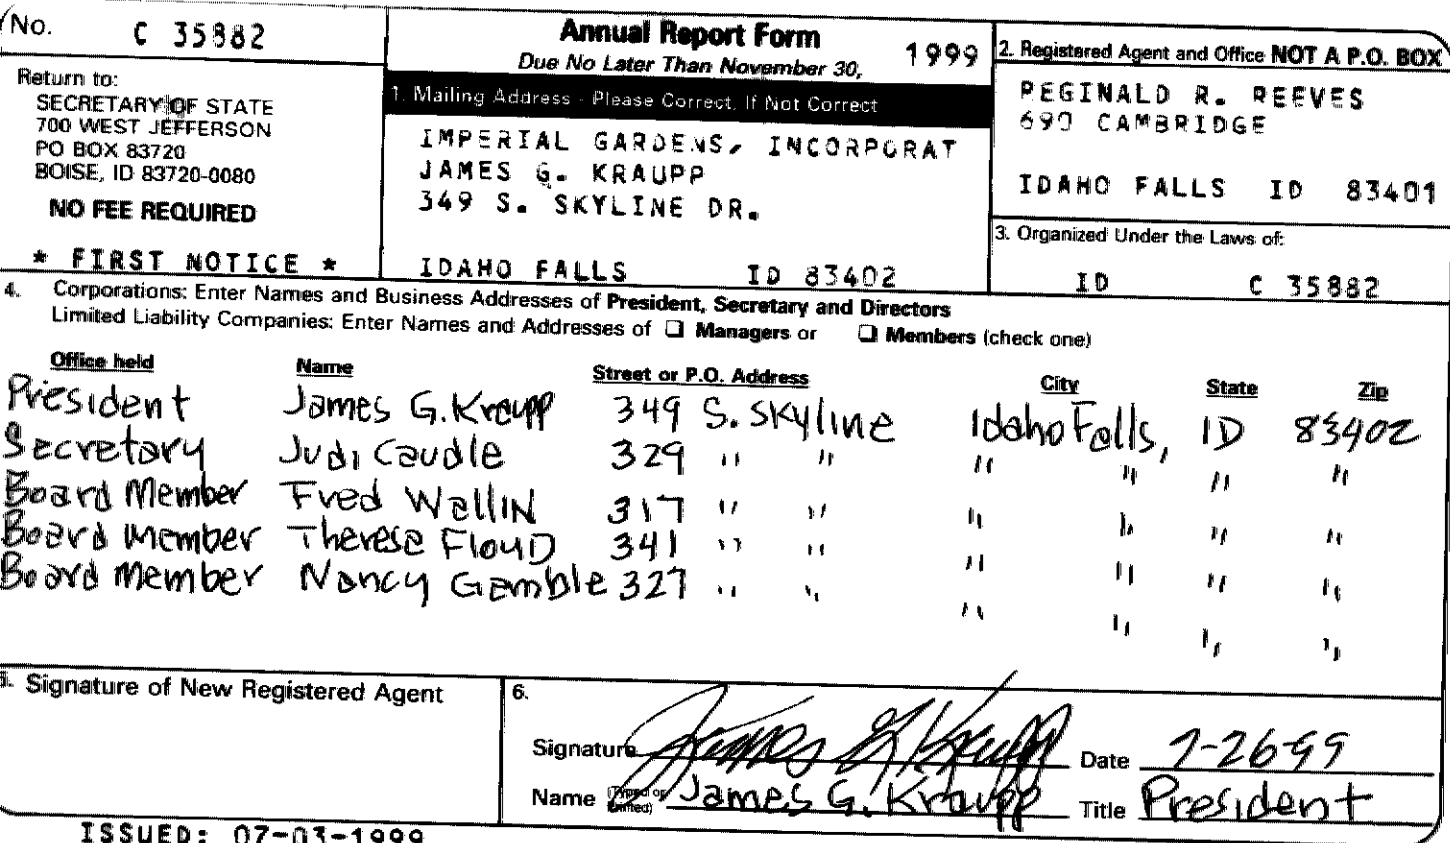 No. C 35882
Annual Report Form 1999
Due No Later Than November 30,
Return to:
SECRETARY OF STATE
700 WEST JEFFERSON
PO BOX 83720
BOISE, ID 83720-0080
NO FEE REQUIRED
* FIRST NOTICE *
1. Mailing Address - Please Correct, If Not Correct
IMPERIAL GARDENS, INCORPORAT
JAMES G. KRAUPP
349 S. SKYLINE DR.
IDAHO FALLS ID 83402
2. Registered Agent and Office NOT A P.O. BOX
REGINALD R. REEVES
690 CAMBRIDGE
IDAHO FALLS ID 83401
3. Organized Under the Laws of:
ID C 35882
4. Corporations: Enter Names and Business Addresses of President, Secretary and Directors
Limited Liability Companies: Enter Names and Addresses of ❑ Managers or ❑ Members (check one)
Office held Name Street or P.O. Address City State Zip
President James G. Kraupp 349 S. Skyline Idaho Falls, ID 83402
Secretary Judi Caudle 329 " " " " " "
Board Member Fred Wallin 317 " " " " " "
Board Member Therese Floyd 341 " " " " " "
Board Member Nancy Gamble 327 " " " " " "
5. Signature of New Registered Agent
6.
Signature James G Kraupp Date 7-26-99
Name (Typed or Printed) James G. Kraupp Title President
ISSUED: 07-03-1999